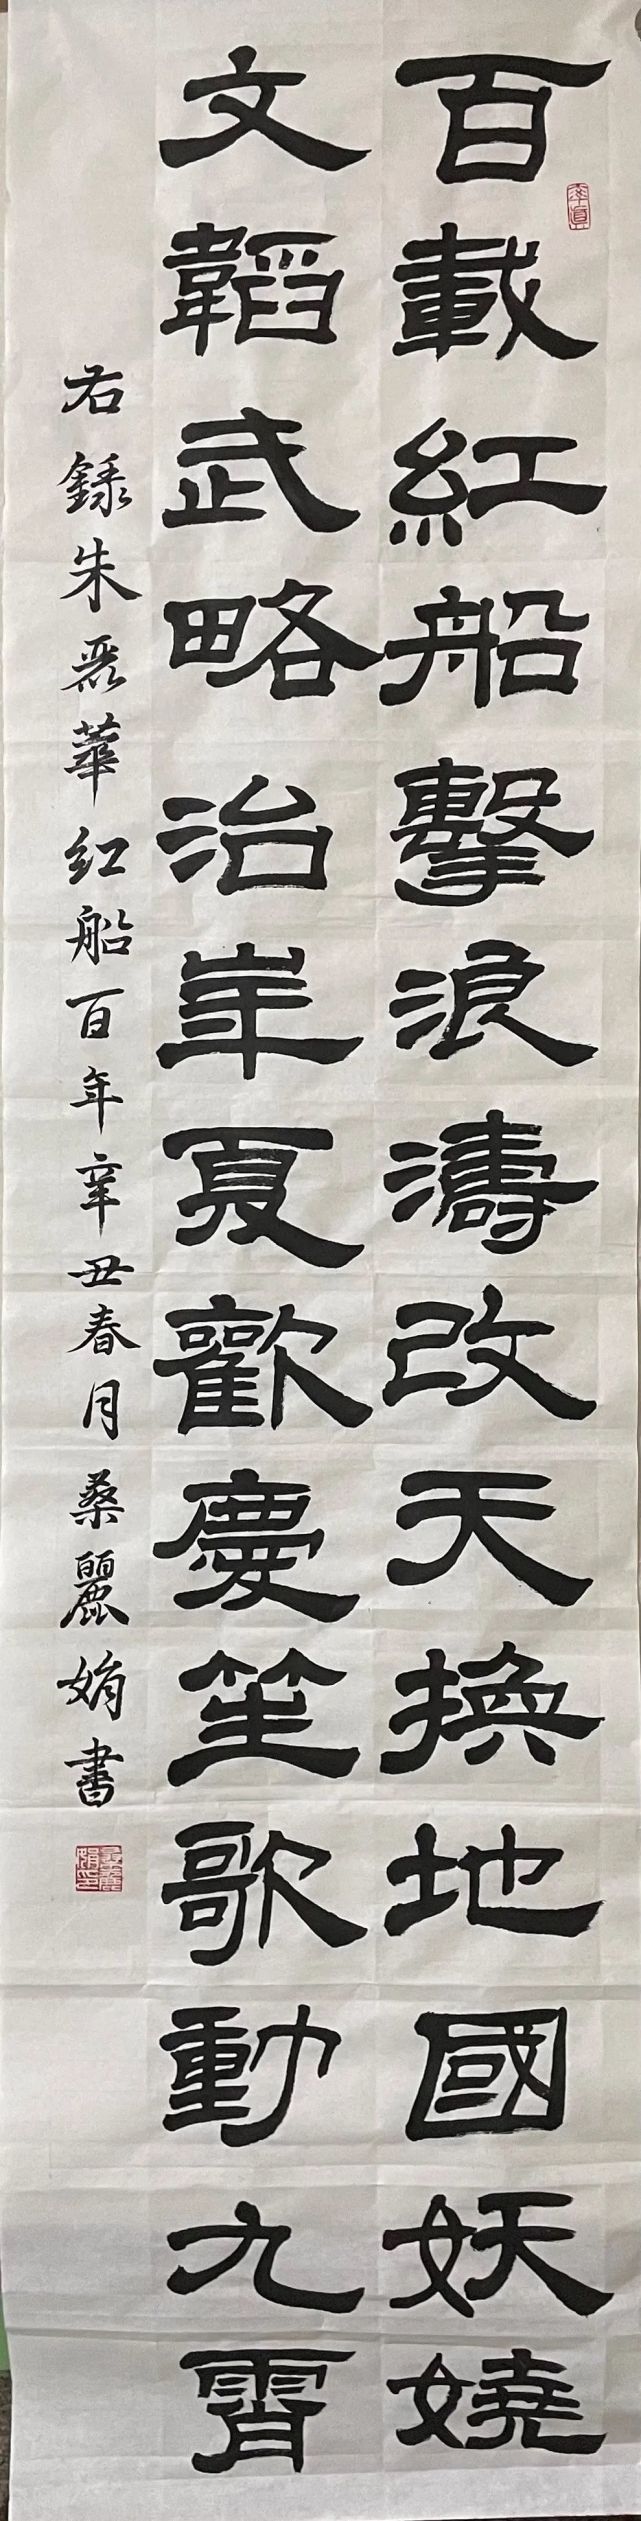 百載紅船擊浪濤改天換地國妖嬈
文韜武略治華夏歡慶笙歌動九霄
右錄朱麗華紅船百年辛丑春月桑麗娟書
率真
桑麗娟印